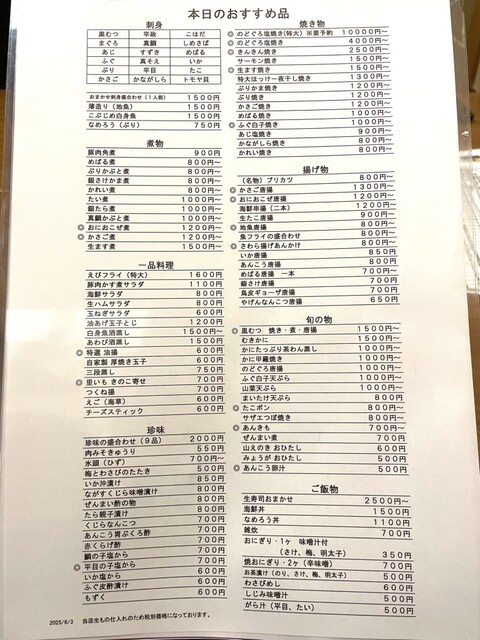 本日のおすすめ品
刺身
黒むつ 平政 こはだ
まぐろ 真鯛 しめさば
あじ すずき めばる
ふぐ 真そえ いか
ぶり 平目 たこ
かさご かながしら トモヤ貝
おまかせ刺身盛合わせ(1人前) 1500円~
薄造り(地魚) 1500円~
こぶじめ白身魚 1500円~
なめろう(ぶり) 750円
煮物
豚肉角煮 900円
めばる煮 800円~
ぶりかぶと煮 800円~
銀さけかま煮 800円~
かれい煮 800円~
たい煮 1000円~
銀たら煮 1000円~
真鯛かぶと煮 1000円~
◎おにおこぜ煮 1200円~
◎かさご煮 1200円~
生ます煮 1500円~
一品料理
えびフライ(特大) 1600円
豚肉かす煮サラダ 1100円
海鮮サラダ 800円
生ハムサラダ 800円
玉ねぎサラダ 600円
油あげ玉子とじ 1200円
白身魚酒蒸し 1500円~
あわび酒蒸し 1500円~
◎特選 油揚 600円
自家製 厚焼き玉子 600円
三段蒸し 750円
◎里いも きのこ寄せ 700円
つくね揚 700円
えご(海草) 600円
チーズスティック 600円
珍味
珍味の盛合わせ(9品) 2000円
肉みそきゅうり 550円
氷頭(ひず) 700円~
梅とわさびのたたき 500円
いか沖漬け 850円
ながすくじら味噌漬け 800円
ぜんまい酢の物 800円
たら親子漬け 800円
くじらなんこつ 700円
あんこう胃ぶくろ酢 700円
赤くらげ酢 700円
鯛の子塩から 700円
◎平目の子塩から 700円
いか塩から 600円
ふぐ皮酢漬け 600円
もずく 600円
2025/8/3 当店生もの仕入れのため税別価格になっております。
焼き物
◎のどぐろ塩焼き(特大)※要予約 10000円~
◎のどぐろ塩焼き 4000円~
◎きんきん焼き 2500円~
サーモン焼き 1500円
◎生ます焼き 1500円~
特大ほっけ一夜干し焼き 1300円
ぶりかま焼き 1200円~
ぶり焼き 1200円~
かさご焼き 1200円~
めばる焼き 1000円~
◎ふぐ白子焼き 1000円~
あじ塩焼き 900円~
かながしら焼き 800円~
かれい焼き 800円~
揚げ物
(名物)ブリカツ 800円~
◎かさご唐揚 1300円~
◎おにおこぜ唐揚 1200円~
海鮮串揚(二本) 1200円~
生たこ唐揚 900円
◎地魚唐揚 800円~
魚フライの盛合わせ 800円~
◎さわら揚げあんかけ 800円~
いか唐揚 850円
あんこう唐揚 800円~
めばる唐揚 一本 700円~
銀さけ唐揚 700円
鳥皮ギョーザ唐揚 700円
やげんなんこつ唐揚 650円
旬の物
◎黒むつ 焼き・煮・唐揚 1500円~
むきかに 1500円~
かにたっぷり茶わん蒸し 1000円~
かに甲羅焼き 1000円~
のどぐろ唐揚 1000円~
ふぐ白子天ぷら 1000円~
山菜天ぷら 1000円~
まいたけ天ぷら 800円~
◎たこポン 800円~
サザエつぼ焼き 800円~
◎あんきも 700円~
ぜんまい煮 700円
山えのき おひたし 600円
みょうが おひたし 500円
◎あんこう卵汁 500円
ご飯物
生寿司おまかせ 2500円~
海鮮丼 1500円
なめろう丼 1100円
雑炊 700円
おにぎり・1ヶ 味噌汁付
(さけ、梅、明太子) 350円
焼おにぎり・2ヶ(辛味噌) 700円
お茶漬け(のり、さけ、梅、明太子) 500円
わさびめし 600円
しじみ味噌汁 500円
がら汁(平目、たい) 500円